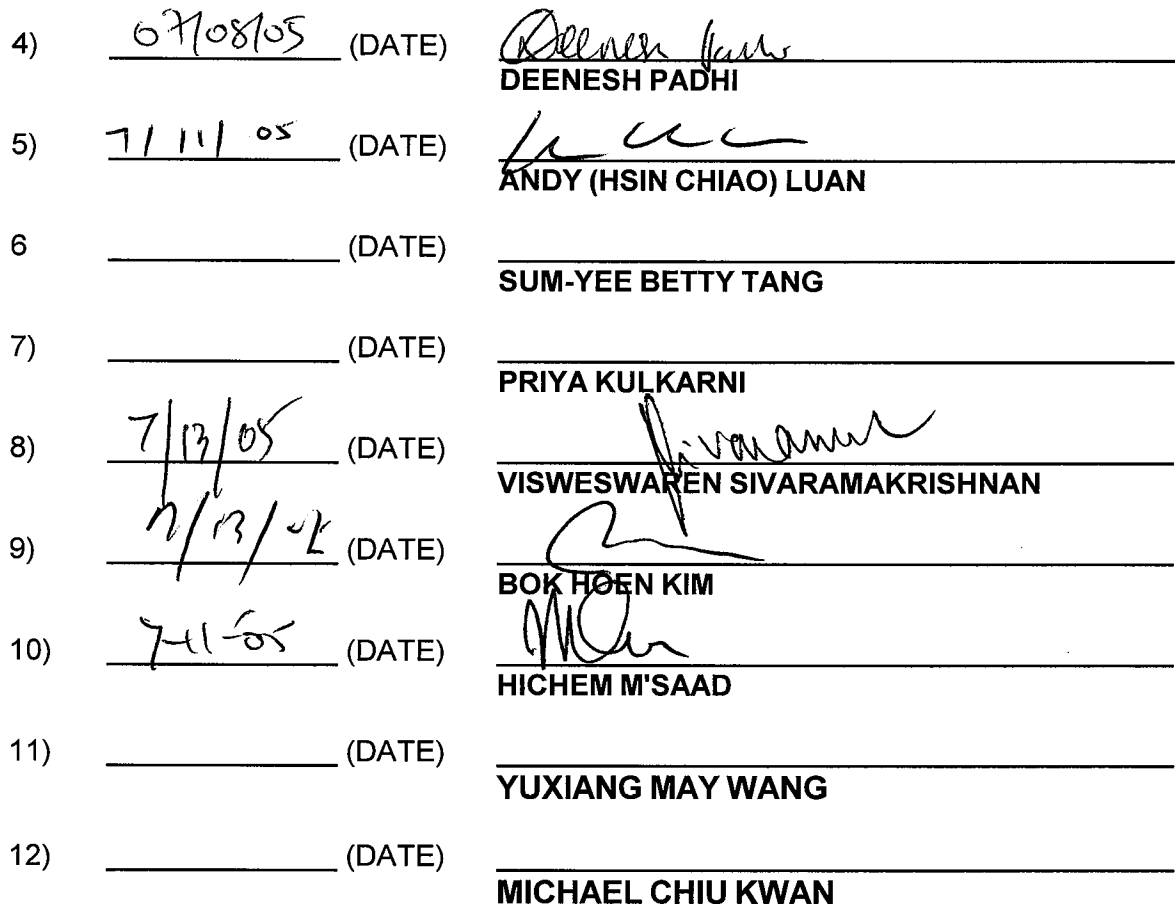 4) 07/08/05 (DATE) Deenesh Padhi
DEENESH PADHI
5) 7/11/05 (DATE)
ANDY (HSIN CHIAO) LUAN
6 (DATE)
SUM-YEE BETTY TANG
7) (DATE)
PRIYA KULKARNI
8) 7/13/05 (DATE)
VISWESWAREN SIVARAMAKRISHNAN
9) 7/13/05 (DATE)
BOK HOEN KIM
10) 7-11-05 (DATE)
HICHEM M'SAAD
11) (DATE)
YUXIANG MAY WANG
12) (DATE)
MICHAEL CHIU KWAN